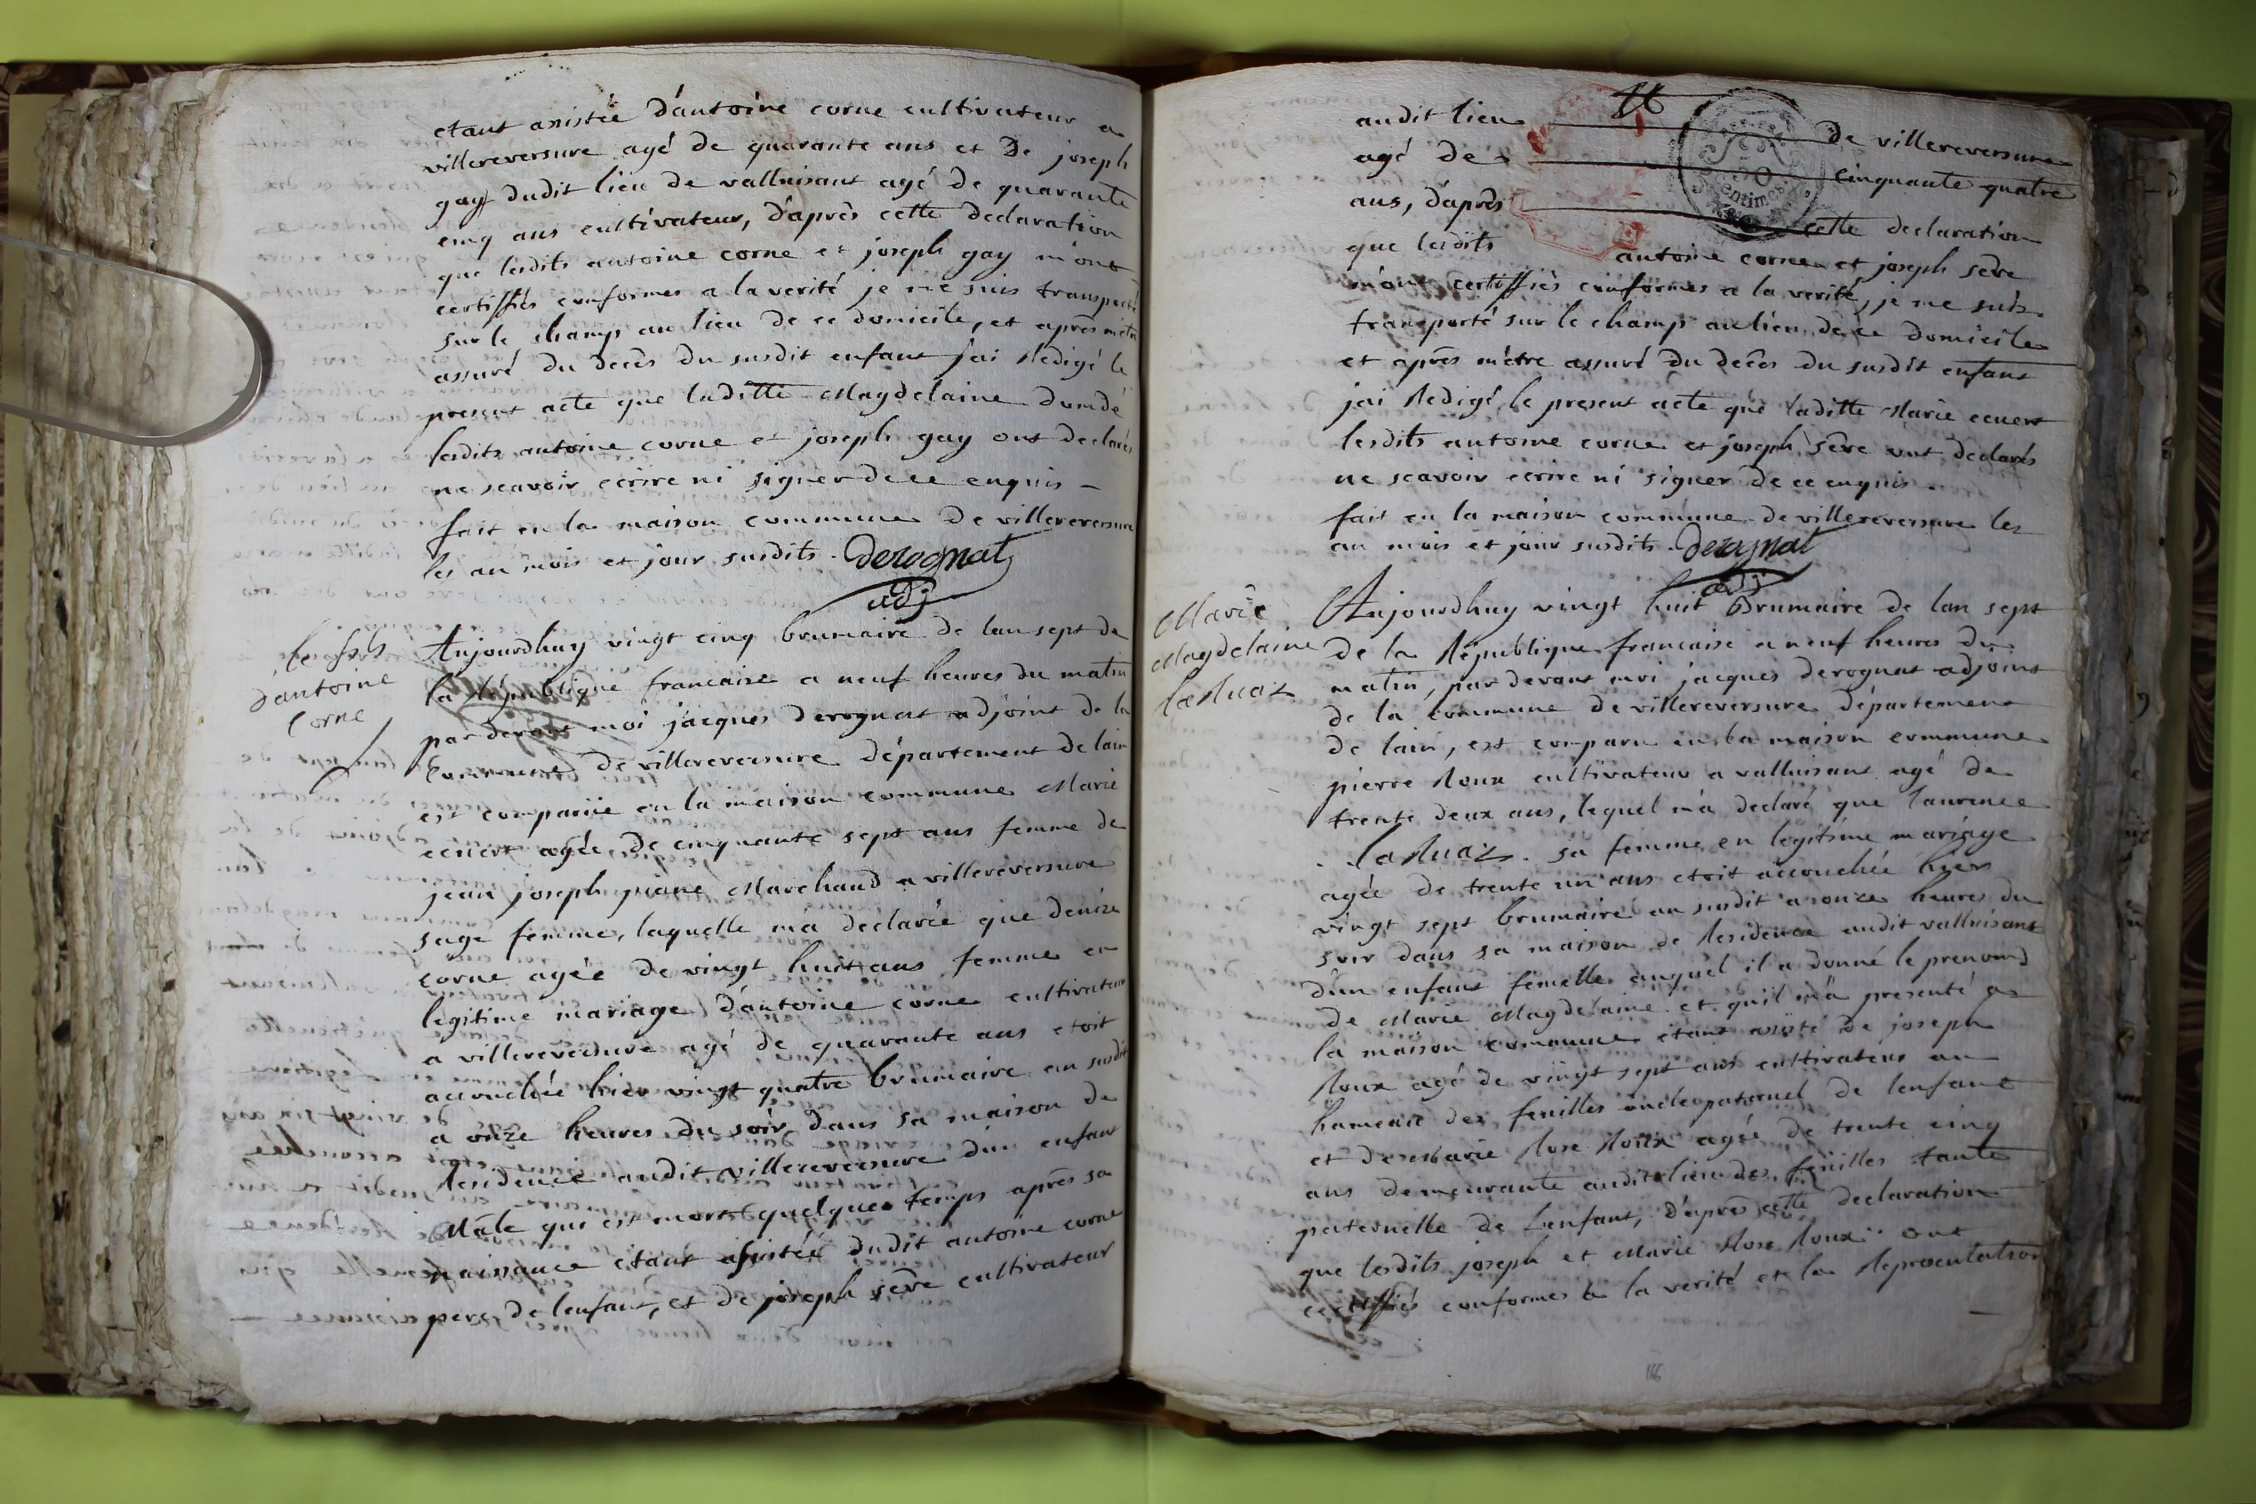 etant assistée d'antoine corne cultivateur a
villereversure agé de quarante ans et De joseph
gay dudit lieu de valluisant agé de quarante
cinq ans cultivateur, d'après cette declaration
que lesdits antoine corne et joseph gay m'ont
certiffiés conformes a la verité je me suis transporté
sur le champ au lieu de ce domicile, et après m'etre
assuré du decès du susdit enfant j'ai Redigé le
present acte que laditte Magdelaine
lesdits antoine corne et joseph gay ont declarés
ne scavoir ecrire ni signer de ce enquis –
fait en la maison commune De villereversure
les an mois et jour susdits. derognat
adj
le fils
d'antoine
Corne
Aujourdhuy vingt cinq brumaire de lan sept de
la République francaise a neuf heures du matin
par devant moi jacques derognat adjoint de la
Commune de villereversure département de lain
est comparüe en la maison commune Marie
ecuert agée de cinquante sept ans femme de
jean joseph Marchand a villereversure
sage femme, laquelle m'a declarée que denize
corne agée de vingt huit ans femme en
legitime mariage d'antoine corne cultivateur
a villereversure agé de quarante ans etoit
accouchée hier vingt quatre brumaire an susdit
a onze heures du soir dans sa maison de
Residence audit villereversure d'un enfant
Mâle qui est mort quelque temps après sa
naissance étant assistée dudit antoine corne
pere de lenfant, et de joseph sève cultivateur
audit lieu de villereversure
agé de cinquante quatre
ans, d'après cette declaration
que lesdits antoine corne et joseph sève
m'ont certiffiés conformes a la verité, je me suis
transporté sur le champ au lieu de ce domicile
et après m'etre assuré du decès du susdit enfant
jai Redigé le present acte que laditte Marie ecuert
lesdits antoine corne et joseph sève ont declarés
ne scavoir ecrire ni signer de ce enquis.
fait en la maison commune de villereversure les
an mois et jour susdits. derognat
adj
50
centimes
Marie
Magdelaine
laRuaz
Aujourdhuy vingt huit Brumaire de lan sept
de la République francaise a neuf heures du
matin, par devant moi jacques derognat adjoint
de la commune de villereversure département
de lain, est comparu en la maison commune
pierre Roux cultivateur a valluisant agé de
trente deux ans, lequel m'a declaré que laurence
laRuaz sa femme en legitime mariage
agée de trente un ans etoit accouchée hier
vingt sept brumaire an susdit a onze heures du
soir dans sa maison de Residence audit valluisant
d'un enfant femelle auquel il a donné le prenom
de Marie Magdelaine et qu'il m'a presenté a
la maison commune étant assisté de joseph
Roux agé de vingt sept ans cultivateur au
hameau des feuilles oncle paternel de lenfant
et de Marie Rose Roux agée de trente cinq
ans demeurante audit lieu des feuilles tante
paternelle de Lenfant, d'après cette declaration
que lesdits joseph et Marie Rose Roux ont
certiffiés conformes a la verité et la Representation
116